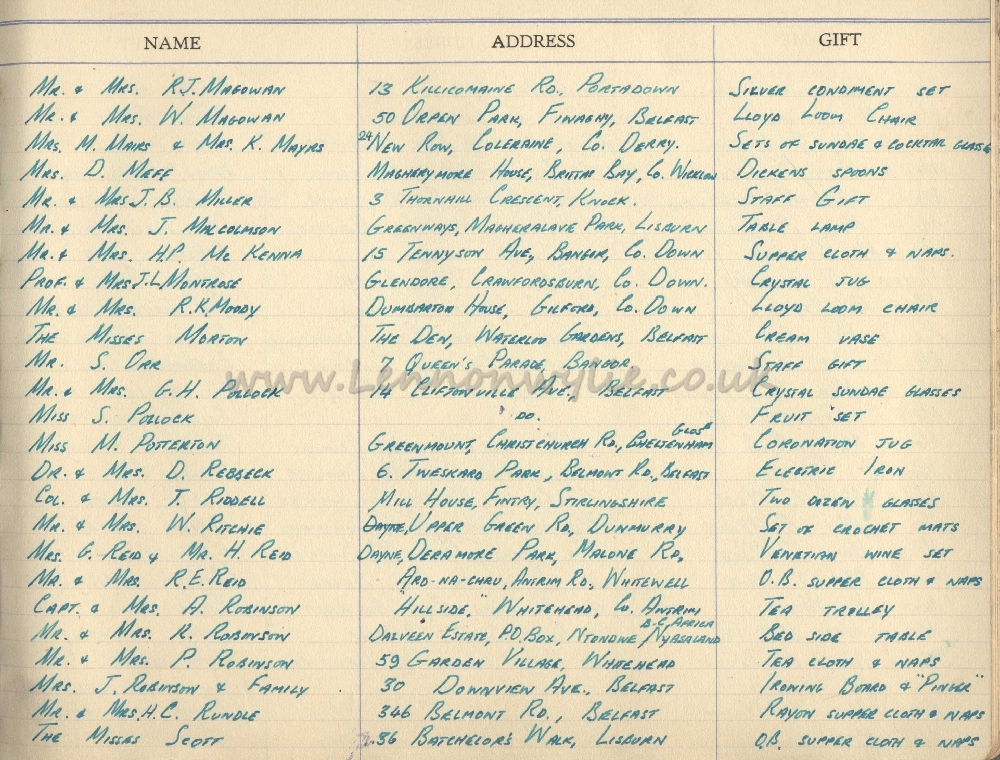 NAME ADDRESS GIFT
Mr. & Mrs. R.J. Magowan 13 Killicomaine Rd., Portadown Silver condiment set
Mr. & Mrs. W. Magowan 50 Orpen Park, Finaghy, Belfast Lloyd Loom Chair
Mrs. M. Mairs & Mrs. K. Mayrs 24 New Row, Coleraine, Co. Derry. Sets of sundae & cocktail glasses
Mrs. D. Neff Magherymore House, Brittas Bay, Co. Wicklow Dickens spoons
Mr. & Mrs J. B. Miller 3 Thornhill Crescent, Knock. Staff Gift
Mr. & Mrs. J. Malcolmson Greenways, Magheralave Park, Lisburn Table lamp
Mr. & Mrs. H.P. Mc Kenna 15 Tennyson Ave, Bangor, Co. Down Supper cloth & naps.
Prof. & Mrs J.L Montrose Glendore, Crawfordsburn, Co. Down. Crystal jug
Mr. & Mrs. R.K. Moody Dumbarton House, Gilford, Co. Down Lloyd loom chair
The Misses Morton The Den, Waterloo Gardens, Belfast Cream vase
Mr. S. Orr 7 Queen's Parade, Bangor. Staff gift
www.Lennonwylie.co.uk
Mr. & Mrs. G.H. Pollock 14 Cliftonville Ave., Belfast Crystal sundae glasses
Miss S. Pollock do. Fruit set
Miss M. Potterton Greenmount, Christchurch Rd., Cheltenham Glos. Coronation jug
Dr. & Mrs. D. Rebbeck 6. Tweskard Park, Belmont Rd., Belfast Electric Iron
Col. & Mrs. T. Riddell Mill House, Fintry, Stirlingshire Two dozen glasses
Mr. & Mrs. W. Ritchie Dayne, Upper Green Rd, Dunmurry Set of crochet mats
Mrs. G. Reid & Mr. H. Reid Dayne, Deramore Park, Malone Rd, Venetian wine set
Mr. & Mrs. R.E. Reid Ard-na-chru, Antrim Rd., Whitewell O.B. supper cloth & naps
Capt. & Mrs. A. Robinson Hillside," Whitehead, Co. Antrim Tea trolley
Mr. & Mrs. K. Robinson Dalveen Estate, P.O. Box, Ntondwe, Nyasaland B.C. Africa Bed side table
Mr. & Mrs. P. Robinson 59 Garden Village, Whitehead Tea cloth & naps
Mrs. J. Robinson & Family 30 Downview Ave., Belfast Ironing Board &
Mr. & Mrs. H.C. Rundle 346 Belmont Rd., Belfast Rayon supper cloth & naps
The Misses Scott 36 Batchelor's Walk, Lisburn O.B. supper cloth & naps